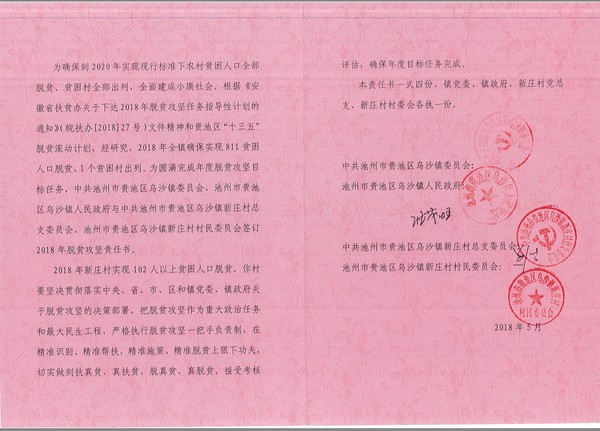 为确保到2020年实现现行标准下农村贫困人口全部
脱贫、贫困村全部出列，全面建成小康社会。根据《安
徽省扶贫办关于下达2018年脱贫攻坚任务指导性计划的
通知》（皖扶办[2018]27号）文件精神和贵池区“十三五”
脱贫滚动计划，经研究，2018年全镇确保实现811贫困
人口脱贫、1个贫困村出列。为圆满完成年度脱贫攻坚目
标任务，中共池州市贵池区乌沙镇委员会、池州市贵池
区乌沙镇人民政府与中共池州市贵池区乌沙镇新庄村总
支委员会、池州市贵池区乌沙镇新庄村村民委员会签订
2018年脱贫攻坚责任书。
2018年新庄村实现102人以上贫困人口脱贫。你村
要坚决贯彻落实中央、省、市、区和镇党委、镇政府关
于脱贫攻坚的决策部署，把脱贫攻坚作为重大政治任务
和最大民生工程，严格执行脱贫攻坚一把手负责制，在
精准识别、精准帮扶、精准施策、精准脱贫上狠下功夫，
切实做到扶真贫、真扶贫，脱真贫、真脱贫，接受考核
评估，确保年度目标任务完成。
本责任书一式四份，镇党委、镇政府、新庄村党总
支、新庄村村委会各执一份。
中共池州市贵池区乌沙镇委员会：
池州市贵池区乌沙镇人民政府：
中共池州市贵池区乌沙镇新庄村总支委员会：
池州市贵池区乌沙镇新庄村村民委员会：
村民委员会
2018年5月